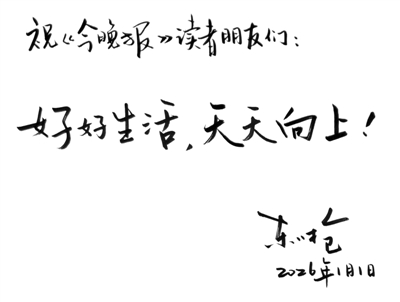 祝《今晚报》读者朋友们：
好好生活，天天向上！
东东枪
2026年1月1日